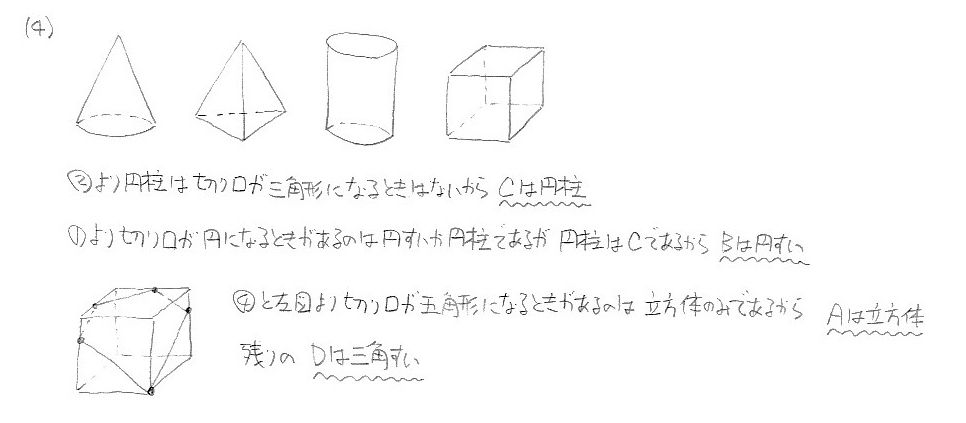 (4)
③より円柱は切り口が三角形になるときはないから Cは円柱
①より切り口が円になるときがあるのは円すいか円柱であるが 円柱はCであるから Bは円すい
④と左図より切り口が五角形になるときがあるのは 立方体のみであるから Aは立方体
残りの Dは三角すい